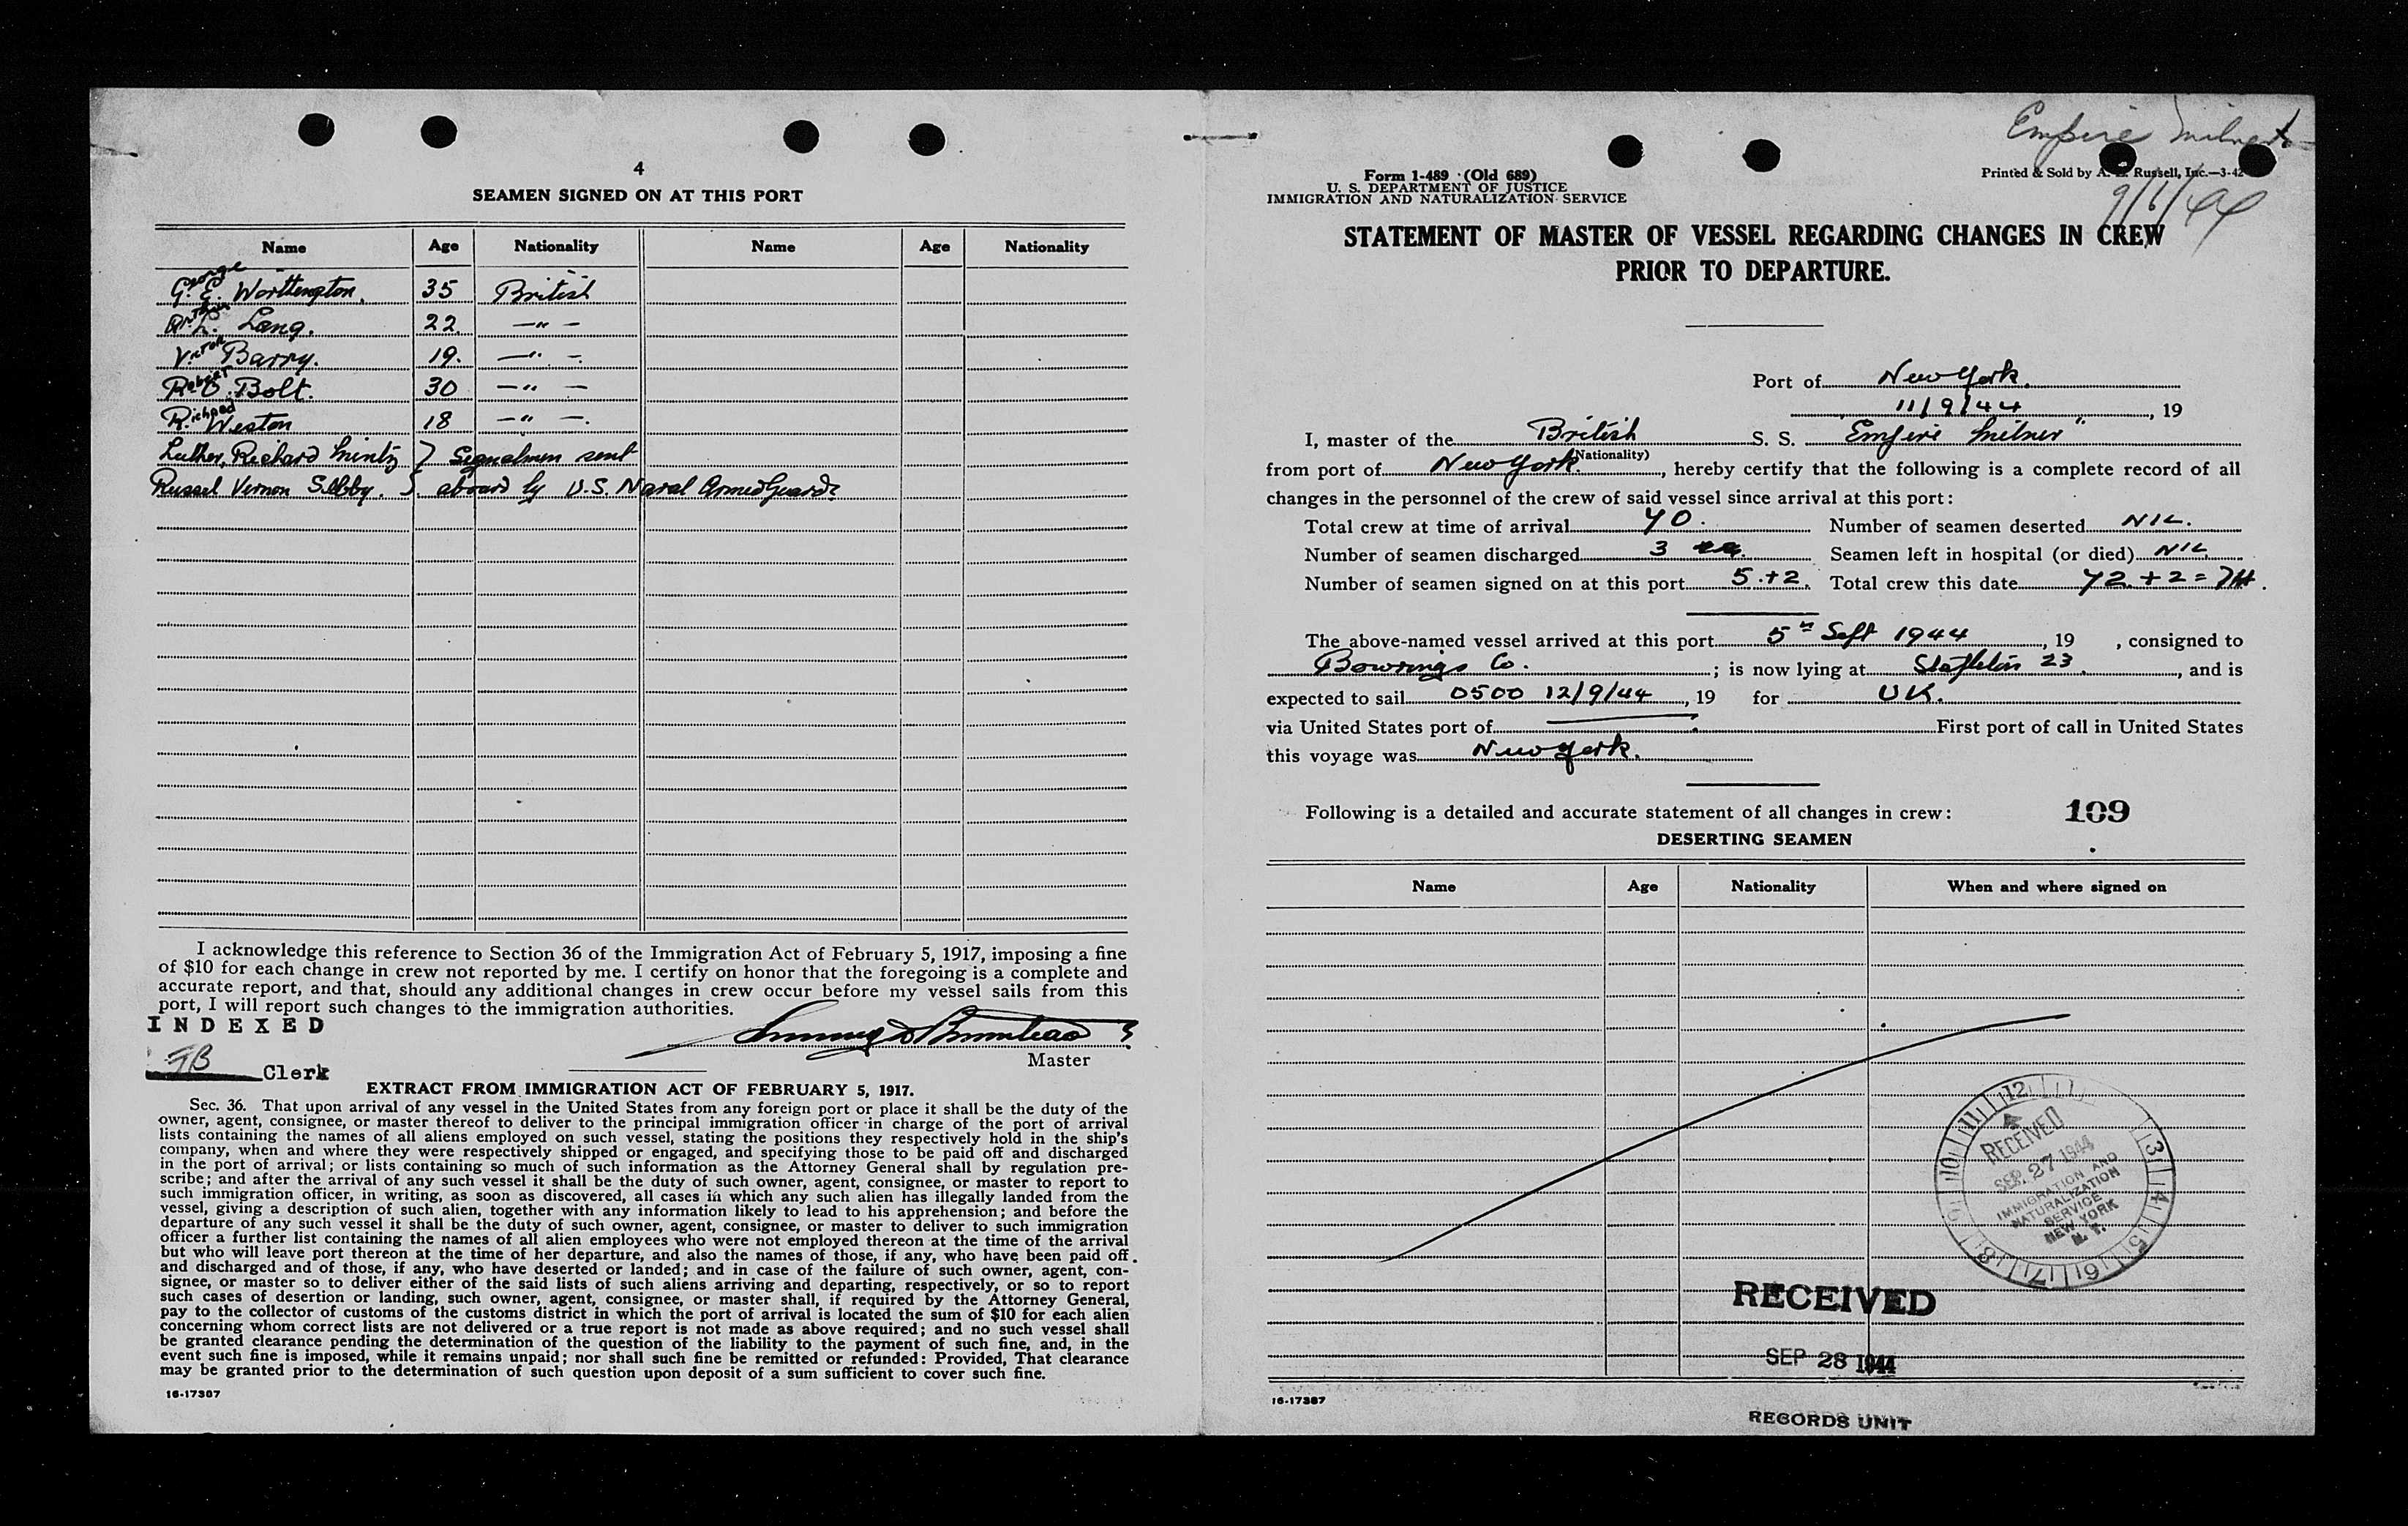 4
SEAMEN SIGNED ON AT THIS PORT
Name Age Nationality Name Age Nationality
George
G. E. Worthington. 35 British
Arthur
A. L. Lang. 22 —"—
Victor
V. Barry. 19. —"—.
Robert
R. O. Bolt. 30 —"—
Richard
R. Weston 18 —"—.
Luther, Richard } Signalmen sent
Russel Vernon aboard by U.S. Naval Armed Guard
I acknowledge this reference to Section 36 of the Immigration Act of February 5, 1917, imposing a fine
of $10 for each change in crew not reported by me. I certify on honor that the foregoing is a complete and
accurate report, and that, should any additional changes in crew occur before my vessel sails from this
port, I will report such changes to the immigration authorities.
INDEXED
Master
JB Clerk
EXTRACT FROM IMMIGRATION ACT OF FEBRUARY 5, 1917.
Sec. 36. That upon arrival of any vessel in the United States from any foreign port or place it shall be the duty of the
owner, agent, consignee, or master thereof to deliver to the principal immigration officer in charge of the port of arrival
lists containing the names of all aliens employed on such vessel, stating the positions they respectively hold in the ship's
company, when and where they were respectively shipped or engaged, and specifying those to be paid off and discharged
in the port of arrival; or lists containing so much of such information as the Attorney General shall by regulation pre-
scribe; and after the arrival of any such vessel it shall be the duty of such owner, agent, consignee, or master to report to
such immigration officer, in writing, as soon as discovered, all cases in which any such alien has illegally landed from the
vessel, giving a description of such alien, together with any information likely to lead to his apprehension; and before the
departure of any such vessel it shall be the duty of such owner, agent, consignee, or master to deliver to such immigration
officer a further list containing the names of all alien employees who were not employed thereon at the time of the arrival
but who will leave port thereon at the time of her departure, and also the names of those, if any, who have been paid off
and discharged and of those, if any, who have deserted or landed; and in case of the failure of such owner, agent, con-
signee, or master so to deliver either of the said lists of such aliens arriving and departing, respectively, or so to report
such cases of desertion or landing, such owner, agent, consignee, or master shall, if required by the Attorney General,
pay to the collector of customs of the customs district in which the port of arrival is located the sum of $10 for each alien
concerning whom correct lists are not delivered or a true report is not made as above required; and no such vessel shall
be granted clearance pending the determination of the question of the liability to the payment of such fine, and, in the
event such fine is imposed, while it remains unpaid; nor shall such fine be remitted or refunded: Provided, That clearance
may be granted prior to the determination of such question upon deposit of a sum sufficient to cover such fine.
16-17307
Empire Milner
Form 1-489 (Old 689)
U. S. DEPARTMENT OF JUSTICE
IMMIGRATION AND NATURALIZATION SERVICE
Printed & Sold by A. Russell, Inc.—3-42
STATEMENT OF MASTER OF VESSEL REGARDING CHANGES IN CREW
PRIOR TO DEPARTURE.
Port of New York.
11/9/44, 19
I, master of the British S. S. "Empire Milner"
(Nationality)
from port of New York, hereby certify that the following is a complete record of all
changes in the personnel of the crew of said vessel since arrival at this port:
Total crew at time of arrival 70. Number of seamen deserted NIL.
Number of seamen discharged 3 Seamen left in hospital (or died) NIL
Number of seamen signed on at this port 5.+2. Total crew this date 72 + 2 = 74.
The above-named vessel arrived at this port 5th Sept 1944, 19 , consigned to
Bowrings Co. ; is now lying at Stapleton 23., and is
expected to sail 0500 12/9/44, 19 for UK.
via United States port of First port of call in United States
this voyage was New York.
Following is a detailed and accurate statement of all changes in crew: 109
DESERTING SEAMEN
Name Age Nationality When and where signed on
RECEIVED
SEP 27 1944
IMMIGRATION AND
NATURALIZATION
SERVICE
NEW YORK
N. Y.
RECEIVED
SEP 28 1944
16-17307
RECORDS UNIT